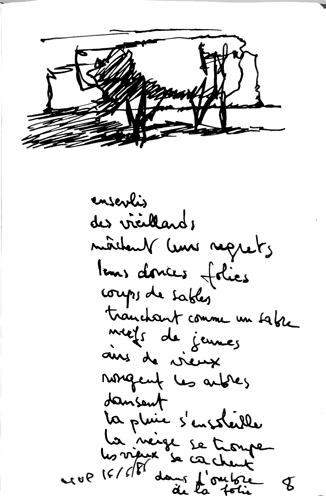 ensevlis
des vieillards
mâchent leurs regrets
leurs douces folies
coups de sables
tranchant comme un sabre
de jeunes
airs de vieux
rongent les arbres
dansent
la pluie s'ensoleille
la neige se trompe
les vieux se cachent
dans l'ombre
de la folie
8